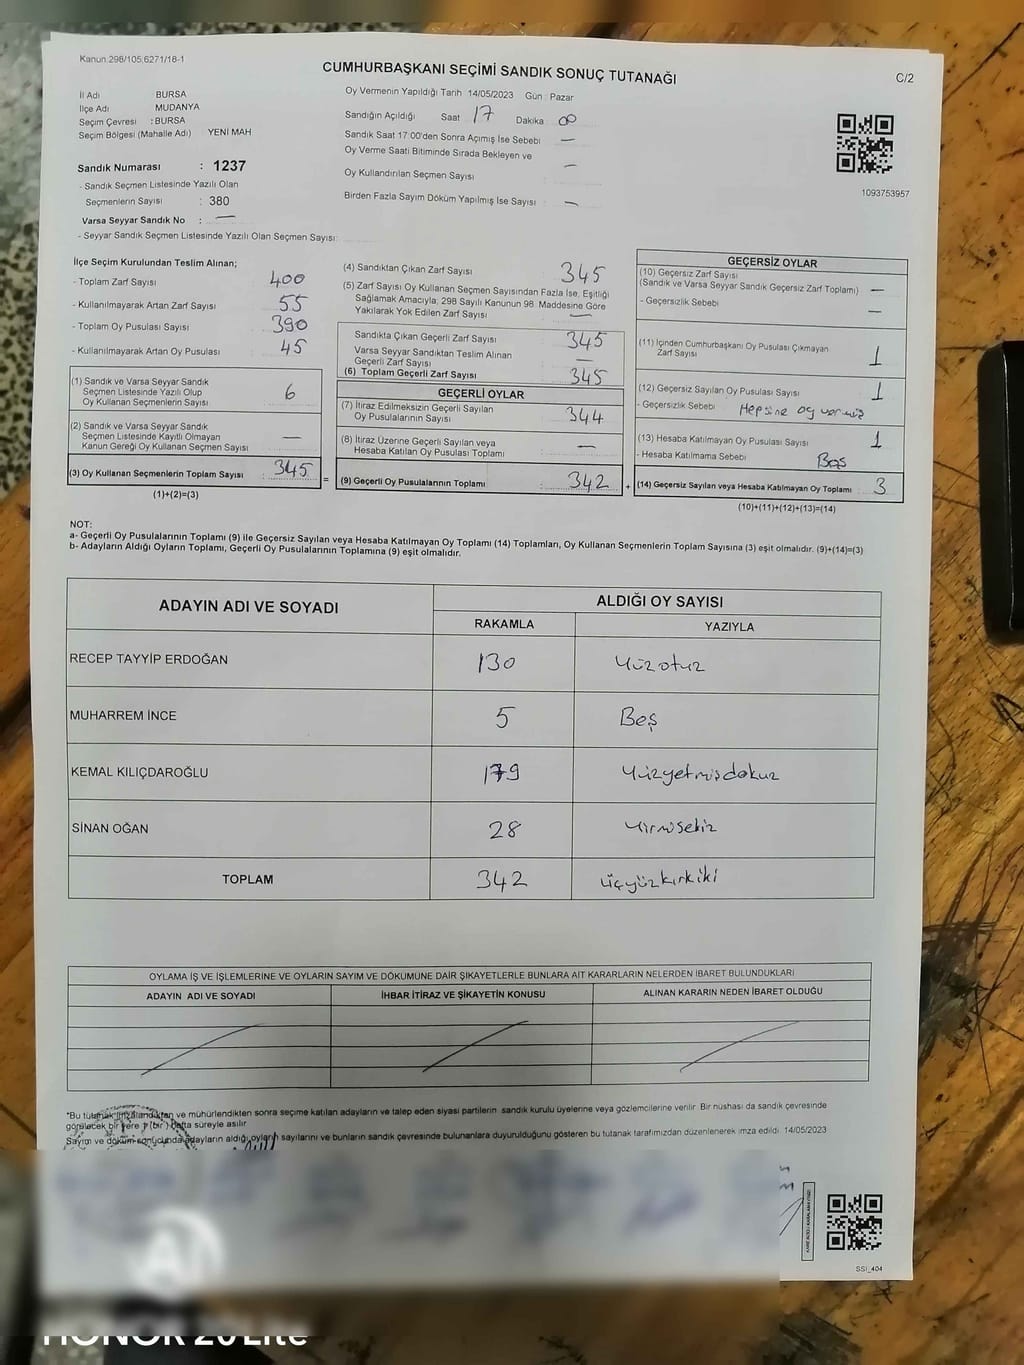 Kanun.298/105,6271/18-1
CUMHURBAŞKANI SEÇİMİ SANDIK SONUÇ TUTANAĞI
C/2
İl Adı BURSA
İlçe Adı MUDANYA
Seçim Çevresi : BURSA
Seçim Bölgesi (Mahalle Adı) : YENİ MAH
Sandık Numarası : 1237
- Sandık Seçmen Listesinde Yazılı Olan
Seçmenlerin Sayısı : 380
Varsa Seyyar Sandık No : —
- Seyyar Sandık Seçmen Listesinde Yazılı Olan Seçmen Sayısı:
Oy Vermenin Yapıldığı Tarih 14/05/2023 Gün : Pazar
Sandığın Açıldığı Saat 17 Dakika 00
Sandık Saat 17:00'den Sonra Açımış İse Sebebi —
Oy Verme Saati Bitiminde Sırada Bekleyen ve
Oy Kullandırılan Seçmen Sayısı —
Birden Fazla Sayım Döküm Yapılmış İse Sayısı : —
1093753957
İlçe Seçim Kurulundan Teslim Alınan;
- Toplam Zarf Sayısı : 400
- Kullanılmayarak Artan Zarf Sayısı : 55
- Toplam Oy Pusulası Sayısı : 390
- Kullanılmayarak Artan Oy Pusulası : 45
(1) Sandık ve Varsa Seyyar Sandık
Seçmen Listesinde Yazılı Olup
Oy Kullanan Seçmenlerin Sayısı : 6
(2) Sandık ve Varsa Seyyar Sandık
Seçmen Listesinde Kayıtlı Olmayan
Kanun Gereği Oy Kullanan Seçmen Sayısı : —
(3) Oy Kullanan Seçmenlerin Toplam Sayısı : 345
(1)+(2)=(3)
=
(4) Sandıktan Çıkan Zarf Sayısı 345
(5) Zarf Sayısı Oy Kullanan Seçmen Sayısından Fazla İse, Eşitliği
Sağlamak Amacıyla; 298 Sayılı Kanunun 98. Maddesine Göre
Yakılarak Yok Edilen Zarf Sayısı —
Sandıkta Çıkan Geçerli Zarf Sayısı : 345
Varsa Seyyar Sandıktan Teslim Alınan
Geçerli Zarf Sayısı : —
(6) Toplam Geçerli Zarf Sayısı : 345
GEÇERLİ OYLAR
(7) İtiraz Edilmeksizin Geçerli Sayılan
Oy Pusulalarının Sayısı : 344
(8) İtiraz Üzerine Geçerli Sayılan veya
Hesaba Katılan Oy Pusulası Toplamı : —
(9) Geçerli Oy Pusulalarının Toplamı : 342
+
GEÇERSİZ OYLAR
(10) Geçersiz Zarf Sayısı
(Sandık ve Varsa Seyyar Sandık Geçersiz Zarf Toplamı) : —
- Geçersizlik Sebebi —
(11) İçinden Cumhurbaşkanı Oy Pusulası Çıkmayan
Zarf Sayısı : 1
(12) Geçersiz Sayılan Oy Pusulası Sayısı : 1
- Geçersizlik Sebebi Hepsine oy vermiş
(13) Hesaba Katılmayan Oy Pusulası Sayısı : 1
- Hesaba Katılmama Sebebi Boş
(14) Geçersiz Sayılan veya Hesaba Katılmayan Oy Toplamı : 3
(10)+(11)+(12)+(13)=(14)
NOT:
a- Geçerli Oy Pusulalarının Toplamı (9) ile Geçersiz Sayılan veya Hesaba Katılmayan Oy Toplamı (14) Toplamları, Oy Kullanan Seçmenlerin Toplam Sayısına (3) eşit olmalıdır. (9)+(14)=(3)
b- Adayların Aldığı Oyların Toplamı, Geçerli Oy Pusulalarının Toplamına (9) eşit olmalıdır.
ADAYIN ADI VE SOYADI
ALDIĞI OY SAYISI
RAKAMLA YAZIYLA
RECEP TAYYİP ERDOĞAN 130 Yüzotuz
MUHARREM İNCE 5 Beş
KEMAL KILIÇDAROĞLU 179 Yüzyetmişdokuz
SİNAN OĞAN 28 Yirmisekiz
TOPLAM 342 üçyüzkırkiki
OYLAMA İŞ VE İŞLEMLERİNE VE OYLARIN SAYIM VE DÖKÜMÜNE DAİR ŞİKAYETLERLE BUNLARA AİT KARARLARIN NELERDEN İBARET BULUNDUKLARI
ADAYIN ADI VE SOYADI İHBAR İTİRAZ VE ŞİKAYETİN KONUSU ALINAN KARARIN NEDEN İBARET OLDUĞU
*Bu tutanak imzalandıktan ve mühürlendikten sonra seçime katılan adayların ve talep eden siyasi partilerin sandık kurulu üyelerine veya gözlemcilerine verilir. Bir nüshası da sandık çevresinde
görülecek bir yere 1 (bir) hafta süreyle asılır.
Sayım ve döküm sonucunda adayların aldığı oyların sayılarını ve bunların sandık çevresinde bulunanlara duyurulduğunu gösteren bu tutanak tarafımızdan düzenlenerek imza edildi. 14/05/2023
SSİ_404
HONOR 20 Lite